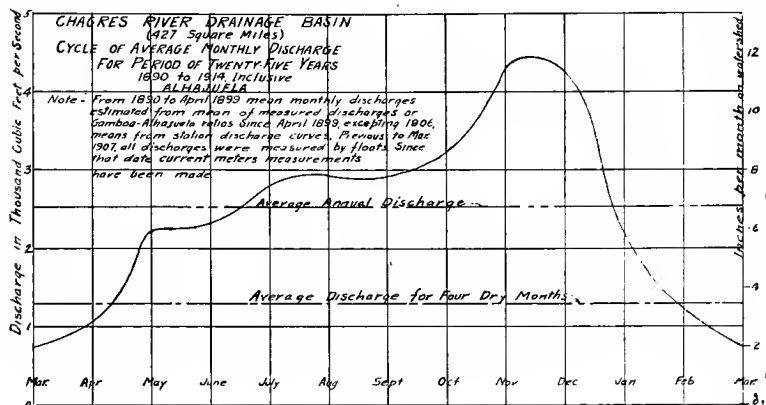 CHAGRES RIVER DRAINAGE BASIN
(427 Square Miles)
CYCLE OF AVERAGE MONTHLY DISCHARGE
FOR PERIOD OF TWENTY-FIVE YEARS
1890 to 1914, Inclusive
ALHAJUELA
Note - From 1890 to April 1899 mean monthly discharges
estimated from mean of measured discharges or
Gamboa-Alhajuela ratios Since April 1899, excepting 1906,
means from station discharge curves. Previous to Mar.
1907, all discharges were measured by floats. Since
that date current meters measurements
have been made
Discharge in Thousand Cubic Feet per Second
5
3
2
1
Inches per month on watershed
12
10
8
6
4
2
Average Annual Discharge
Average Discharge for Four Dry Months
Mar. Apr May June July Aug Sept Oct Nov Dec Jan Feb Mar.